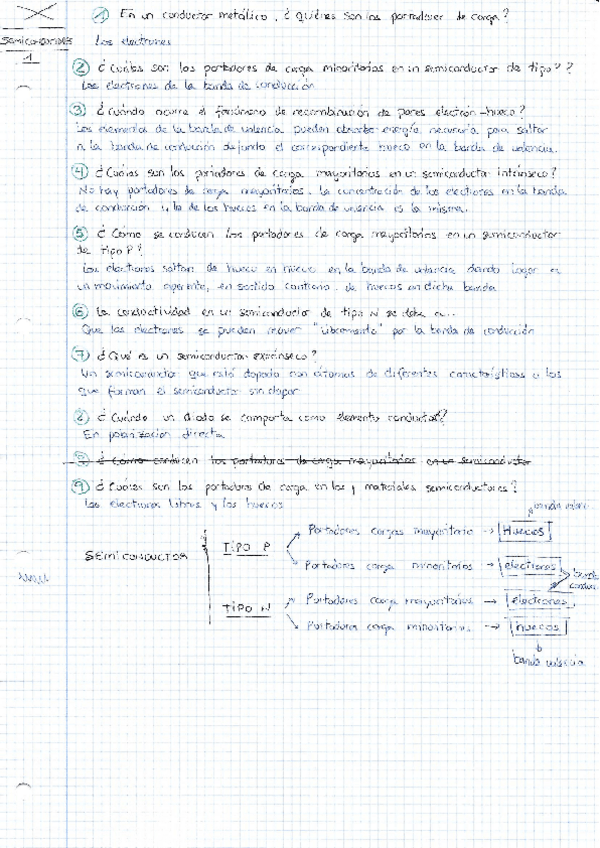 ① En un conductor metálico, ¿quiénes son los portadores de carga?
Semiconductores
1
Los electrones
② ¿Cuáles son los portadores de carga minoritarios en un semiconductor de tipo P?
Los electrones de la banda de conducción
③ ¿Cuándo ocurre el fenómeno de recombinación de pares electrón-hueco?
Los elementos de la banda de valencia pueden absorber energía necesaria para saltar
a la banda de conducción dejando el correspondiente hueco en la banda de valencia.
④ ¿Cuáles son los portadores de carga mayoritarios en un semiconductor intrínseco?
No hay portadores de carga mayoritarios, la concentración de los electrones en la banda
de conducción y la de los huecos en la banda de valencia es la misma.
⑤ ¿Cómo se conducen los portadores de carga mayoritarios en un semiconductor
de tipo P?
Los electrones saltan de hueco en hueco en la banda de valencia dando lugar a
un movimiento aparente, en sentido contrario, de huecos en dicha banda
⑥ La conductividad en un semiconductor de tipo N se debe a...
Que los electrones se pueden mover "libremente" por la banda de conducción
⑦ ¿Qué es un semiconductor extrínseco?
Un semiconductor que está dopado con átomos de diferentes características a los
que forman el semiconductor sin dopar
⑧ ¿Cuándo un diodo se comporta como elemento conductor?
En polarización directa
⑨ ¿Cómo conducen los portadores de carga mayoritarios en un semiconductor
⑨ ¿Cuáles son los portadores de carga en los materiales semiconductores?
Los electrones libres y los huecos
SEMICONDUCTOR
TIPO P
Portadores cargas mayoritario → Huecos
Portadores carga minoritarios → electrones
banda
TIPO N
Portadores carga mayoritarios → electrones
Portadores carga minoritarios → huecos
banda valencia